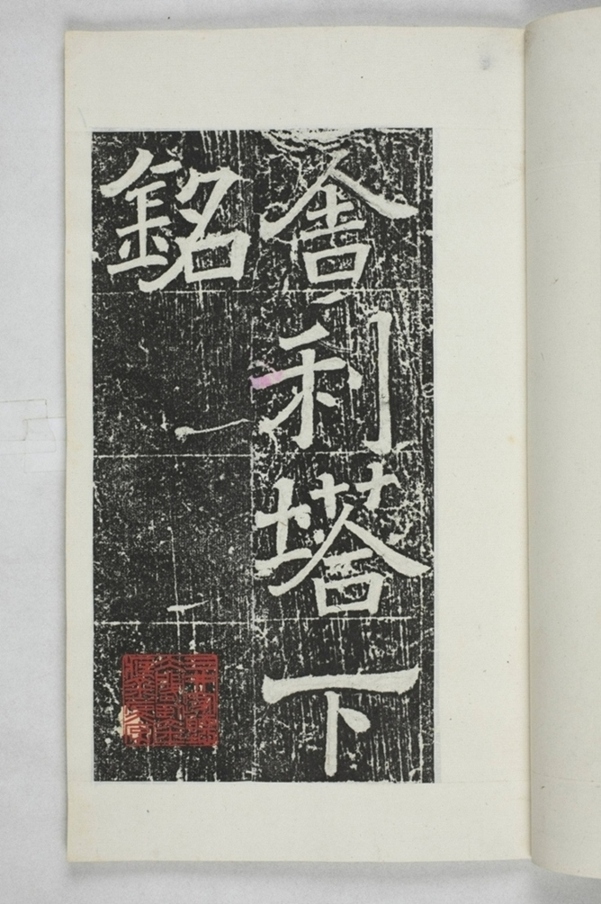 舎利塔下
銘